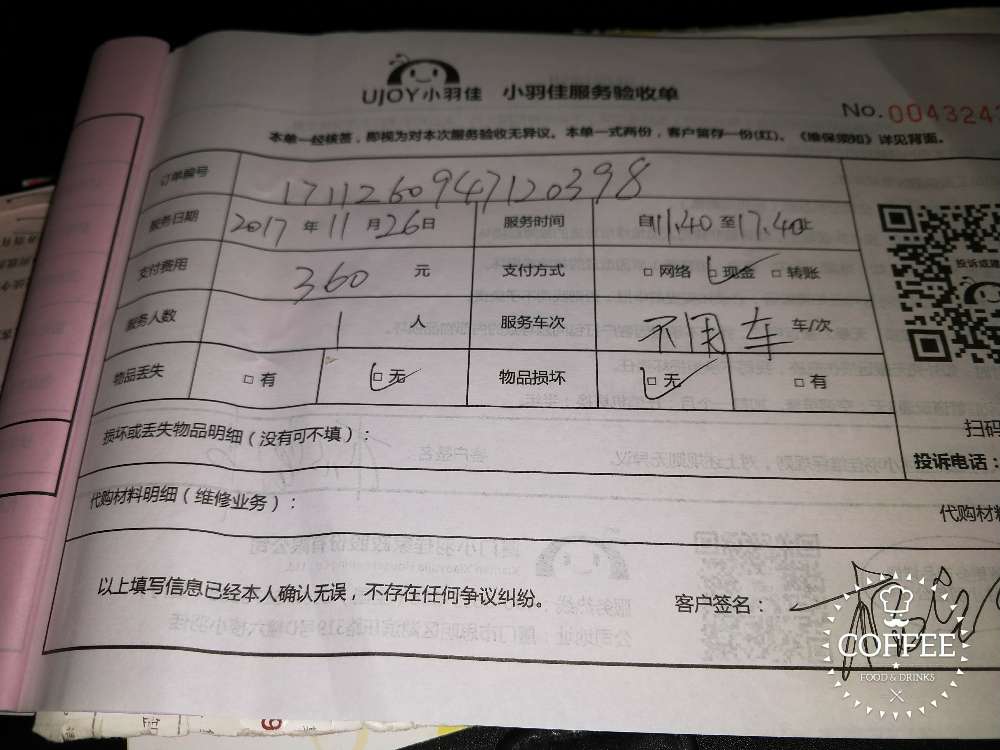 UJOY小羽佳 小羽佳服务验收单
No. 004324
本单一经核签，即视为对本次服务验收无异议。本单一式两份，客户留存一份(红)、《维保须知》详见背面。
订单编号 1711260947120398
服务日期 2017 年 11 月 26 日 服务时间 自 11.40 至 17.40 止
支付费用 360 元 支付方式 □ 网络 □ 现金 □ 转账
服务人数 1 人 服务车次 不用车 车/次
物品丢失 □ 有 □ 无 物品损坏 □ 无 □ 有
损坏或丢失物品明细（没有可不填）：
扫码
投诉电话：
代购材料明细（维修业务）：
代购材料
以上填写信息已经本人确认无误，不存在任何争议纠纷。
客户签名：
COFFEE
FOOD & DRINKS